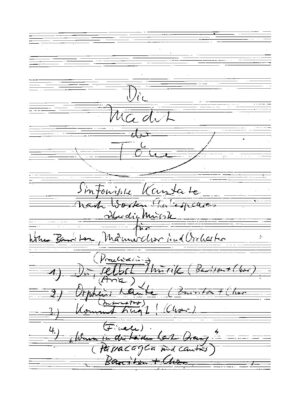 Die
Macht
der
Töne
Sinfonische Kantate
nach Worten Shakespeares
über die Musik
für
hohen Bariton, Männerchor und Orchester
(Proclaiming)
1) Du selbst Musik (Bariton + Chor)
(Aria)
2) Orpheus Laute (Bariton + Chor
3) Kommt singt! (Chor)
(Finale)
4) "Wenn in die Laden
(Passacaglia und Cantus)
Bariton + Chor